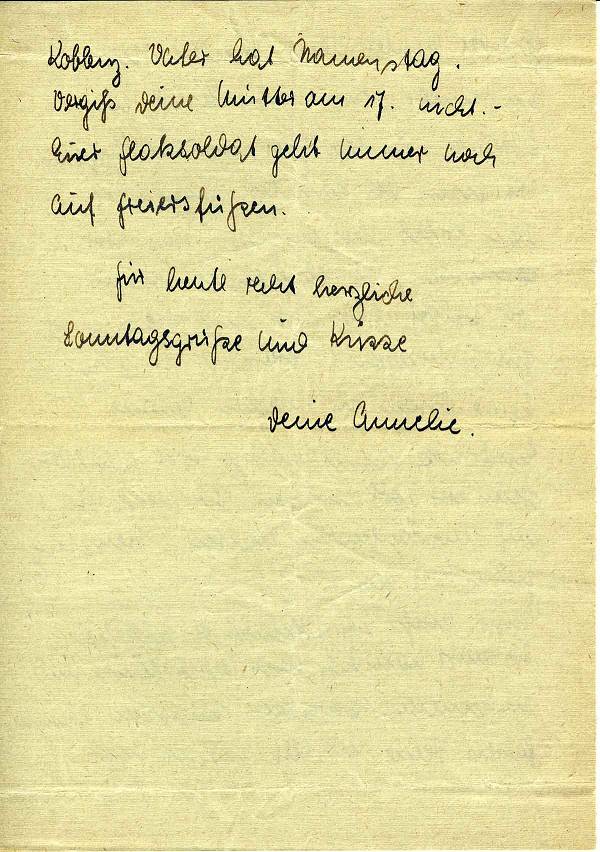 Koblenz. Vater hat Namenstag.
Vergiß deine Mutter am 17. nicht. -
Euer Flaksoldat geht immer noch
auf Freiersfüßen.
Für heute recht herzliche
Sonntagsgrüße und Küsse
deine Annelie.